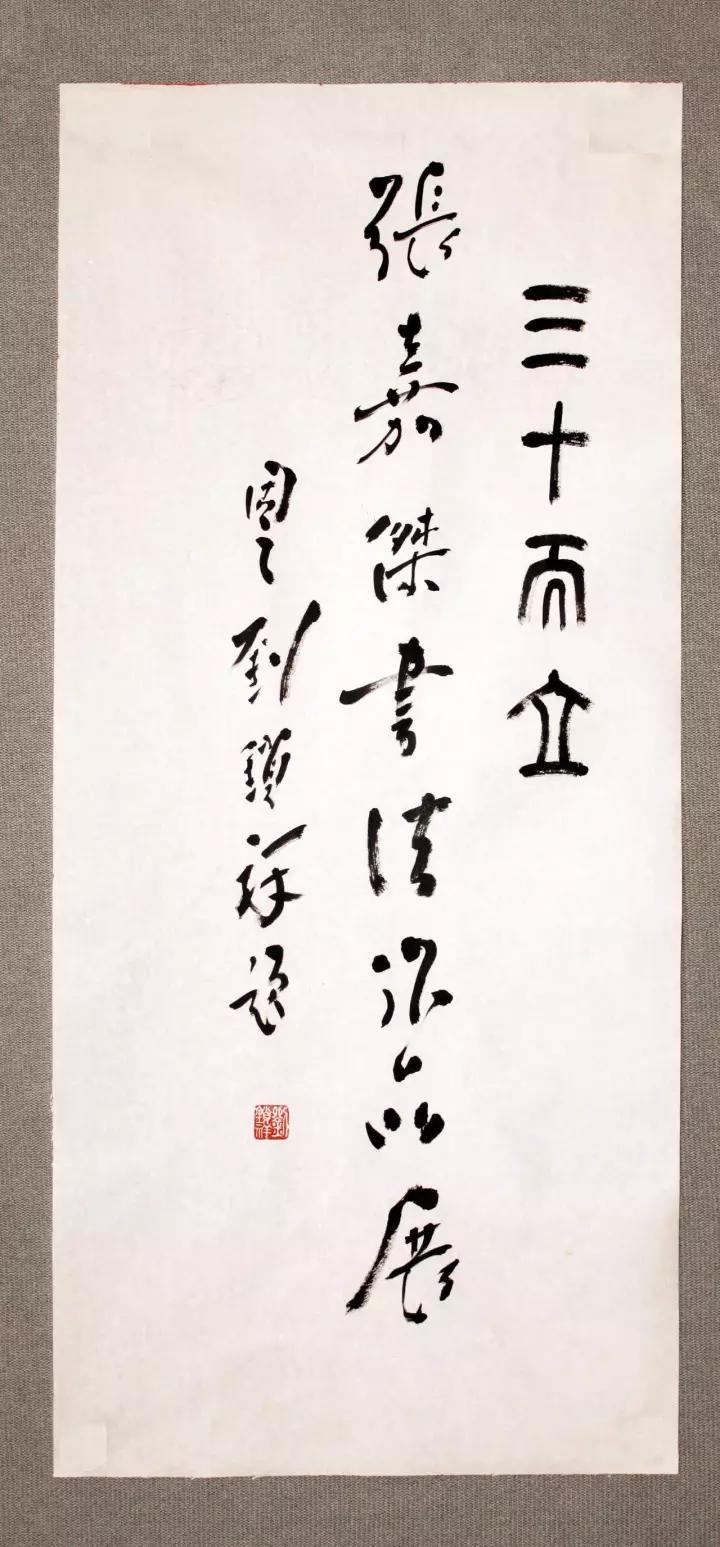 三十而立
張嘉傑書法作品展
周之劉鎖祥題
劉鎖祥